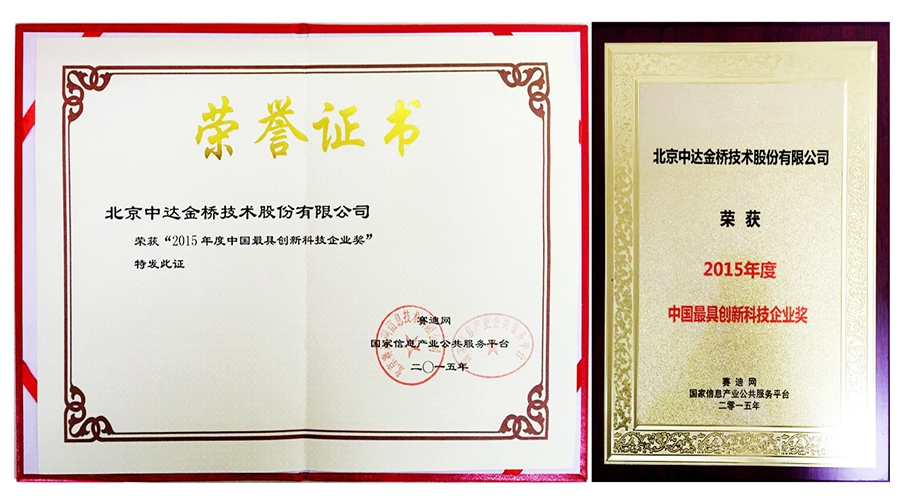 荣誉证书
北京中达金桥技术股份有限公司
荣获“2015年度中国最具创新科技企业奖”
特发此证
赛迪网
国家信息产业公共服务平台
二〇一五年
北京中达金桥技术股份有限公司
荣获
2015年度
中国最具创新科技企业奖
赛迪网
国家信息产业公共服务平台
二零一五年